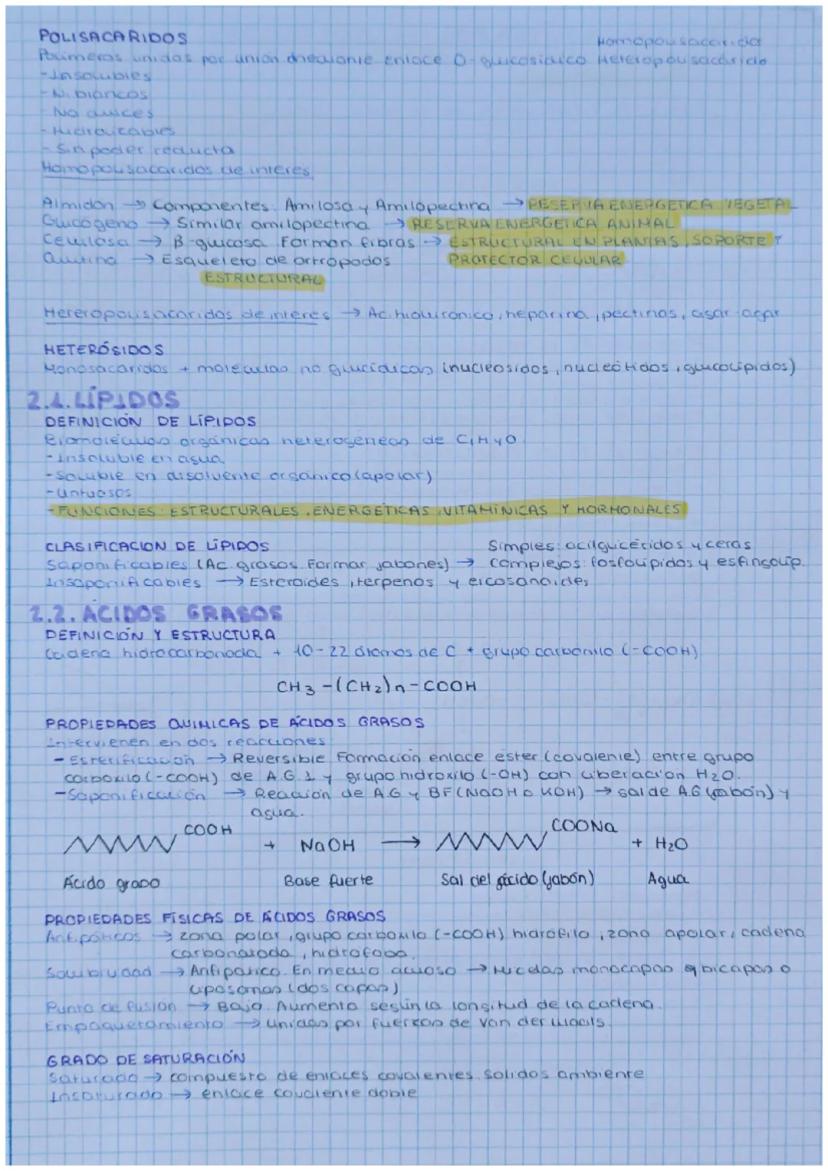 POLISACARIDOS
Homopolisacarido
Polimeros unidos por unión mediante enlace O-glucosidico Heteropolisacárido
-Insolubles
-N. blancos
-No dulces
-Hidrolizables
-Sin poder reducto
Homopolisacaridos de interes
Almidon → Componentes: Amilosa y Amilopectina → RESERVA ENERGETICA VEGETAL
Glucógeno → Similar amilopectina → RESERVA ENERGETICA ANIMAL
Celulosa → β-glucosa. Forman fibras → ESTRUCTURAL EN PLANTAS, SOPORTE Y
Quitina → Esqueleto de artropodos PROTECTOR CELULAR
ESTRUCTURAL
Heteropolisacaridos de interes → Ac. hialuronico, heparina, pectinas, agar-agar
HETERÓSIDOS
Monosacaridos + moleculas no glucídicas (nucleosidos, nucleótidos, glucolípidos)
2.1. LÍPIDOS
DEFINICIÓN DE LÍPIDOS
Biomoleculas orgánicas heterogéneas de C, H y O
-Insoluble en agua
-Soluble en disolvente organico (apolar)
-Untuosos
-FUNCIONES: ESTRUCTURALES, ENERGETICAS, VITAMÍNICAS Y HORMONALES
CLASIFICACION DE LÍPIDOS
Simples: acilglicéridos y ceras
Saponificables (Ac. grasos. Formar jabones) → Complejos: fosfolípidos y esfingolip.
Insaponificables → Esteroides, terpenos y eicosanoides
2.2. ÁCIDOS GRASOS
DEFINICIÓN Y ESTRUCTURA
Cadena hidrocarbonada + 10-22 átomos de C + grupo carbonilo (-COOH)
CH3-(CH2)n-COOH
PROPIEDADES QUIMICAS DE ÁCIDOS GRASOS
Intervienen en dos reacciones
- Esterificación → Reversible. Formación enlace ester (covalente) entre grupo
carboxilo (-COOH) de A.G. 1 y grupo hidroxilo (-OH) con liberación H2O.
-Saponificación → Reacción de A.G y BF (NaOH o KOH) → sal de A.G (jabón) y
agua.
COOH + NaOH → COONa + H2O
Ácido graso Base fuerte Sal del ácido (jabón) Agua
PROPIEDADES FÍSICAS DE ÁCIDOS GRASOS
Antipáticos → zona polar, grupo carboxilo (-COOH) hidrófilo, zona apolar, cadena
carbonatada, hidrofoba.
Solubilidad → Anfipatico. En medio acuoso → Micelas monocapas o bicapas o
liposomas (dos capas)
Punto de fusión → Bajo. Aumenta según la longitud de la cadena.
Empaquetamiento → unidas por fuerzas de Van der Waals.
GRADO DE SATURACIÓN
Saturado → compuesto de enlaces covalentes. Solidos ambiente
Insaturado → enlace covalente doble